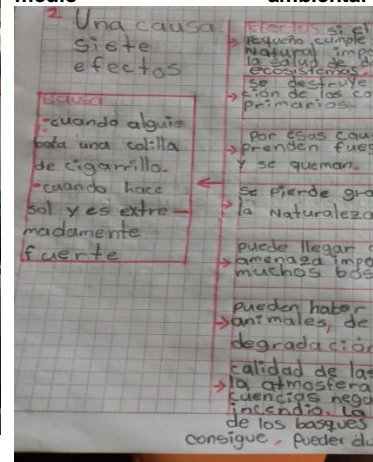 medio ambiental
2 Una causa
siete
efectos
causa
-cuando alguie
bota una colilla
de cigarrillo.
-cuando hace
sol y es extre-
madamente
fuerte
Efectos si el
pequeño cumple
Natural impo
la salud de
ecosistemas.
se destruye
ción de los co
primarios.
Por esas cau
prenden fueg
y se queman.
se pierde gra
la Naturaleza
puede llegar
amenaza impo
muchos bos
pueden haber
animales, de
degradación
calidad de las
la atmosfera
cuencias nega
incendio. La
de los basques
consigue, pueder du